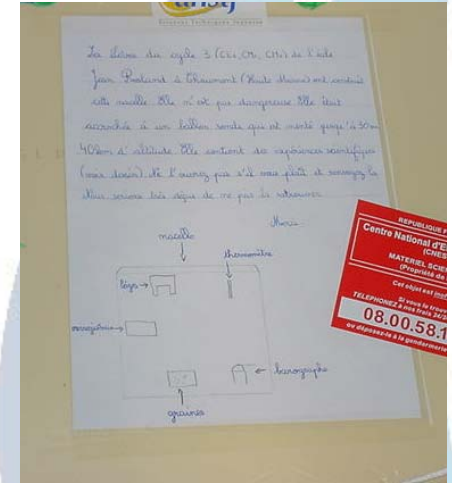 ansty
Sciences Techniques Jeunesse
La élèves du cycle 3 (CE2, CM1, CM2) de l'école
Jean Rostand à Chaumont (Haute Marne) ont construit
cette nacelle. Elle n'est pas dangereuse. Elle était
accrochée à un ballon sonde qui est monté jusqu'à 30 ou
40km d'altitude. Elle contient des expériences scientifiques
(voir dessin). Ne l'ouvrez pas s'il vous plaît et renvoyez-la
Nous serions très déçus de ne pas la retrouver.
Merci
nacelle
thermomètre
légo
barographe
graines
REPUBLIQUE F
Centre National d'E
(CNES
MATERIEL SCIEN
(Propriété de
Cet objet est inof
Si vous le trouv
TELEPHONEZ à nos frais 24/24
08.00.58.1
ou déposez-le à la gendarmerie